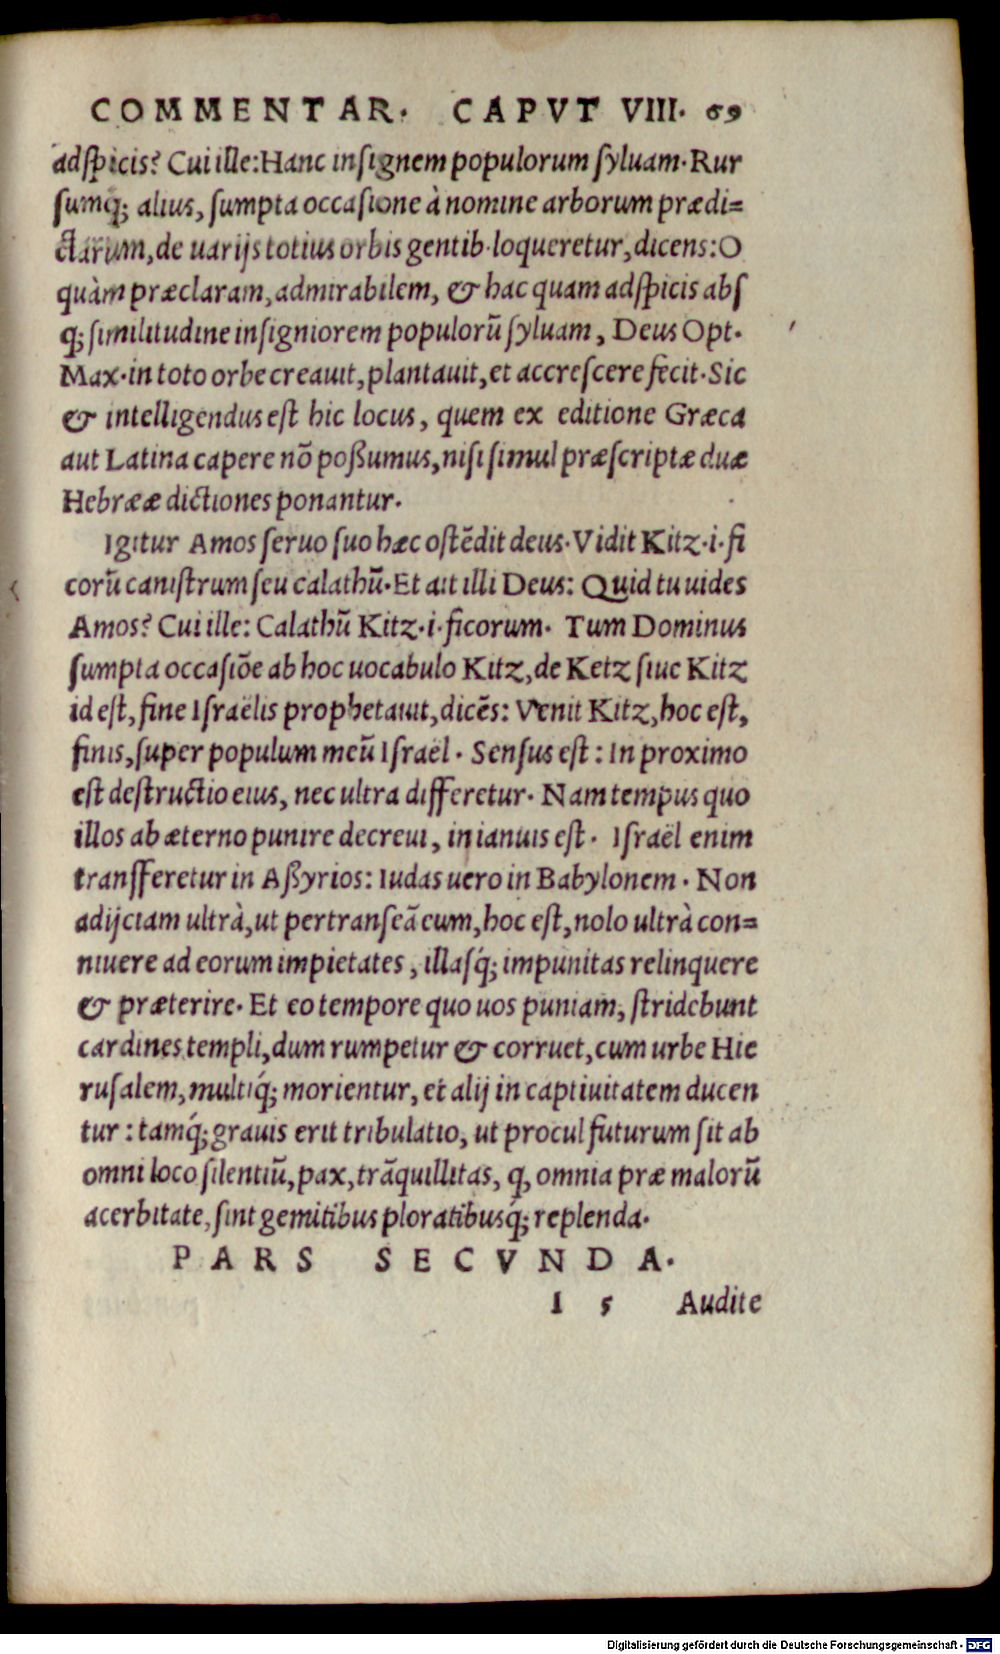 COMMENTAR. CAPVT VIII. 69
adſpicis? Cui ille: Hanc inſignem populorum ſyluam. Rur
ſumq́; alius, ſumpta occaſione à nomine arborum prædi=
ctarum, de uarijs totius orbis gentib. loqueretur, dicens: O
quàm præclaram, admirabilem, & hac quam adſpicis abſ
q́; ſimilitudine inſigniorem populorũ ſyluam, Deus Opt.
Max. in toto orbe creauit, plantauit, et accreſcere fecit. Sic
& intelligendus eſt hic locus, quem ex editione Græca
aut Latina capere nõ poßumus, niſi ſimul præſcriptæ duæ
Hebrææ dictiones ponantur.
Igitur Amos ſeruo ſuo hæc oſtẽdit deus. Vidit Kitz .i. fi
corũ caniſtrum ſeu calathũ. Et ait illi Deus: Quid tu uides
Amos? Cui ille: Calathũ Kitz .i. ficorum. Tum Dominus
ſumpta occaſiõe ab hoc uocabulo Kitz, de Ketz ſiue Kitz
id eſt, fine Iſraëlis prophetauit, dicẽs: Venit Kitz, hoc eſt,
finis, ſuper populum meũ Iſraël. Senſus eſt: In proximo
eſt deſtructio eius, nec ultra differetur. Nam tempus quo
illos ab æterno punire decreui, in ianuis eſt. Iſraël enim
tranſferetur in Aßyrios: Iudas uero in Babylonem. Non
adijciam ultrà, ut pertranſeã eum, hoc eſt, nolo ultrà con=
niuere ad eorum impietates, illaſq́; impunitas relinquere
& præterire. Et eo tempore quo uos puniam, ſtridebunt
cardines templi, dum rumpetur & corruet, cum urbe Hie
ruſalem, multiq́; morientur, et alij in captiuitatem ducen
tur: tamq́; grauis erit tribulatio, ut procul futurum ſit ab
omni loco ſilentiũ, pax, trãquillitas, q, omnia præ malorũ
acerbitate, ſint gemitibus ploratibusq́; replenda.
PARS SECVNDA.
I 5 Audite
Digitalisierung gefördert durch die Deutsche Forschungsgemeinschaft - DFG